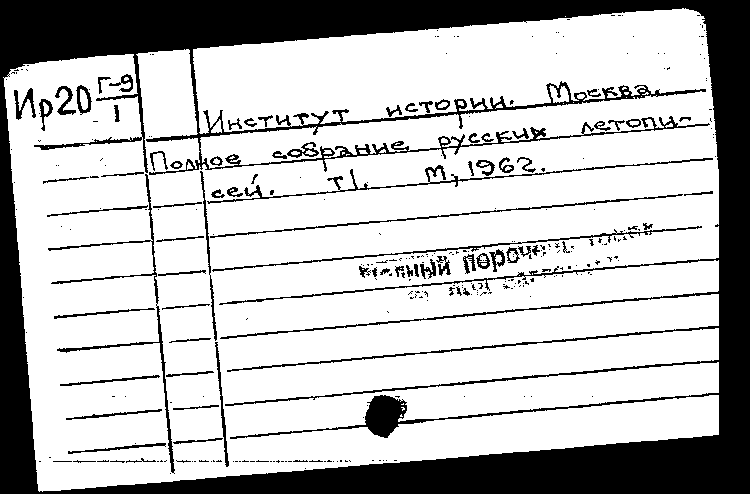 Ир20 Г-9
1
Институт истории. Москва.
Полное собрание русских летопи-
сей. т1. М, 1962.
полный перечень томов